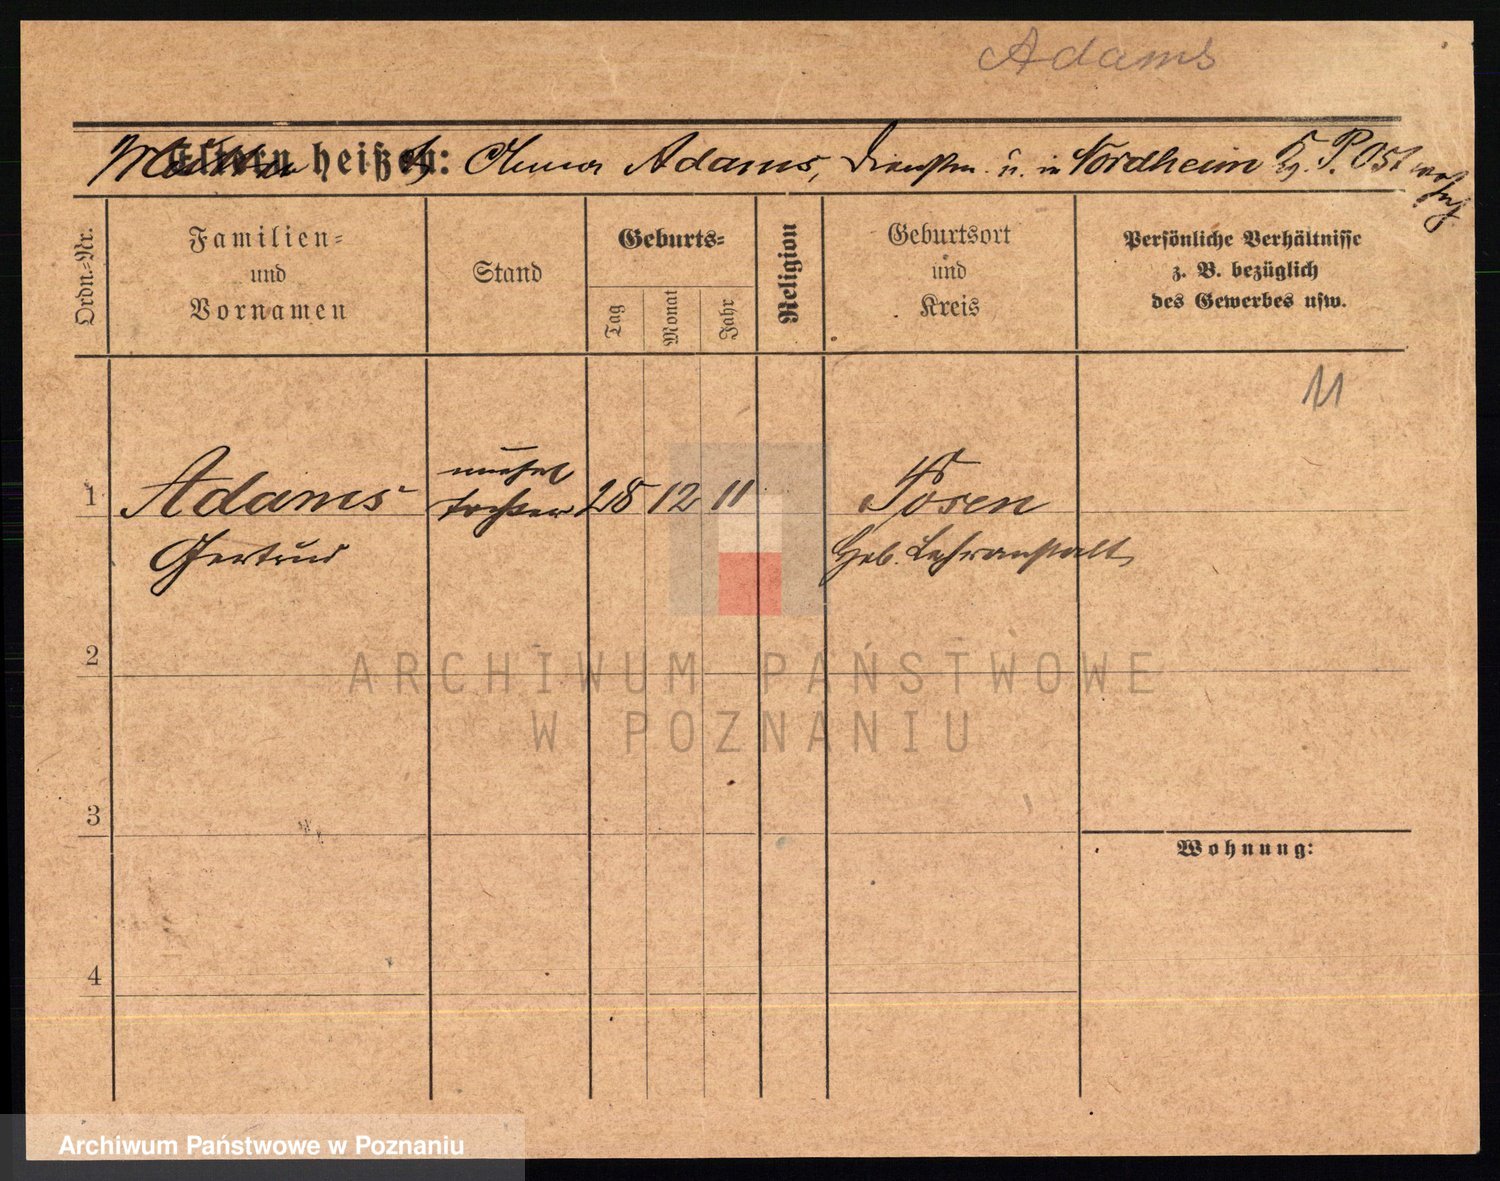 Adams
Mutter heißt: Anna Adams, Dienstm. u. in Nordheim Kr. P. Ost wohnh.
Ordn.=Nr.
Familien=
und
Vornamen
Stand
Geburts=
Tag
Monat
Jahr
Religion
Geburtsort
und
Kreis
Persönliche Verhältnisse
z. B. bezüglich
des Gewerbes usw.
11
1
Adams
Gertrud
unehel
Tochter
28
12
11
Posen
Heb. Lehranstalt
2
ARCHIWUM PAŃSTWOWE
W POZNANIU
3
Wohnung:
4
Archiwum Państwowe w Poznaniu